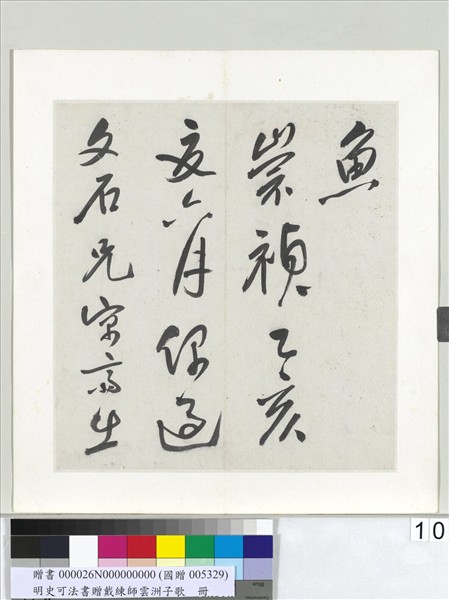 魚
崇禎乙亥
夏六月偶過
文石兄齋出
10
贈書 000026N000000000 (國贈 005329)
明史可法書贈戴練師雲洲子歌 冊